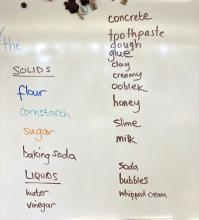 the
SOLIDS
flour
cornstarch
sugar
baking soda
LIQUIDS
water
vinegar
concrete
toothpaste
dough
glue
clay
creamy
Ooblek
honey
slime
milk
soda
bubbles
whipped cream